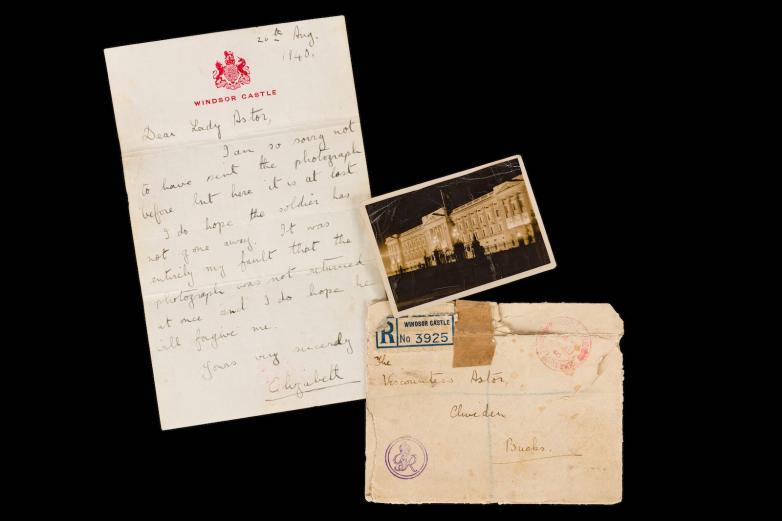 20th Aug.
1940.
WINDSOR CASTLE
Dear Lady Astor,
I am so sorry not
to have sent the photograph
before but here it is at last
I do hope the soldier has
not gone away. It was
entirely my fault that the
photograph was not returned
at once and I do hope he
will forgive me.
Yours very sincerely
Elizabeth
R WINDSOR CASTLE
No 3925
The
Viscountess Astor,
Cliveden
Bucks.